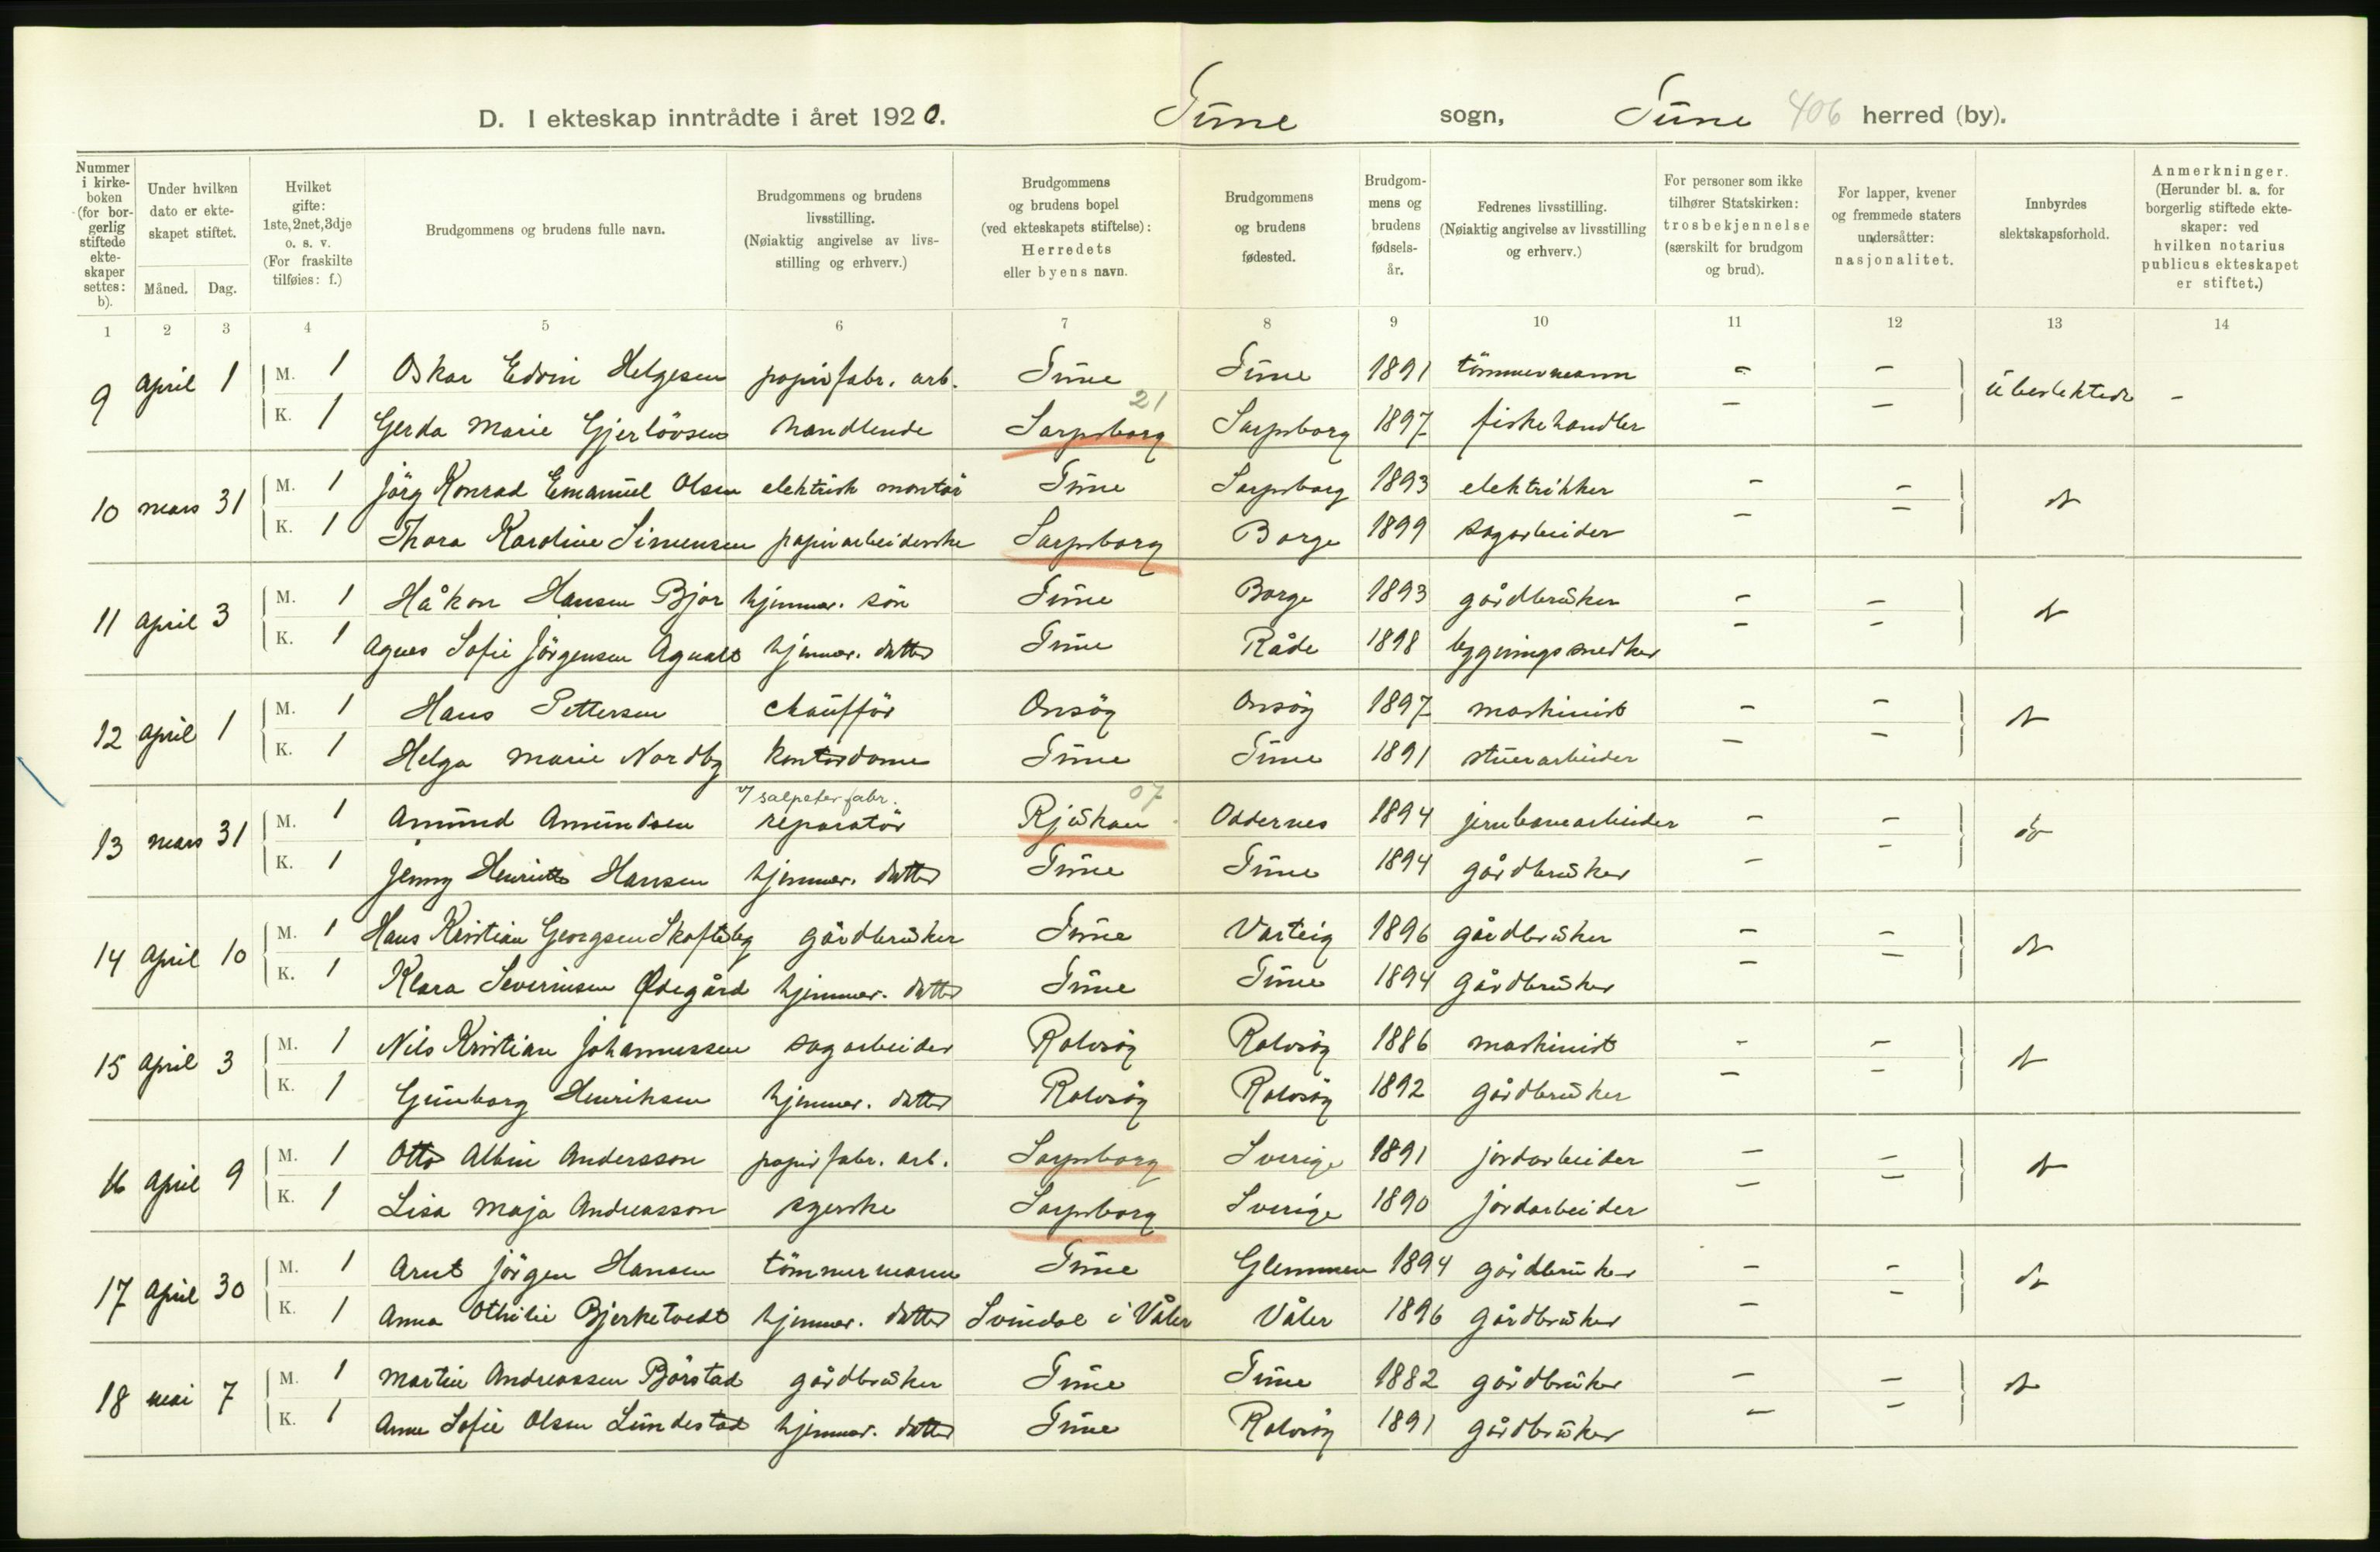 D. I ekteskap inntrådte i året 1920. Tune sogn, Tune 406 herred (by).
Nummer i kirke-boken (for bor-gerlig stiftede ekte-skaper settes: b). Under hvilken dato er ekte-skapet stiftet. Måned. Dag. Hvilket gifte: 1ste, 2net, 3dje o. s. v. (For fraskilte tilføies: f.) Brudgommens og brudens fulle navn. Brudgommens og brudens livsstilling. (Nøiaktig angivelse av livs-stilling og erhverv.) Brudgommens og brudens bopel (ved ekteskapets stiftelse): Herredets eller byens navn. Brudgommens og brudens fødested. Brudgom-mens og brudens fødsels-år. Fedrenes livsstilling. (Nøiaktig angivelse av livsstilling og erhverv.) For personer som ikke tilhører Statskirken: trosbekjennelse (særskilt for brudgom og brud). For lapper, kvener og fremmede staters undersåtter: nasjonalitet. Innbyrdes slektskapsforhold. Anmerkninger. (Herunder bl. a. for borgerlig stiftede ekte-skaper: ved hvilken notarius publicus ekteskapet er stiftet.)
1 2 3 4 5 6 7 8 9 10 11 12 13 14
9 april 1 M. 1 Oskar Edvin Helgesen papirfabr. arb. Tune Tune 1891 tömmermann - - übeslektede -
K. 1 Gerda Marie Gjerlövsen handlende Sarpsborg 21 Sarpsborg 1897 fiskehandler - -
10 mars 31 M. 1 Jörg Konrad Emanuel Olsen elektrisk montör Tune Sarpsborg 1893 elektrikker - - do
K. 1 Thora Karoline Simensen papirarbeiderske Sarpsborg Borge 1899 sagarbeider - -
11 april 3 M. 1 Håkon Hansen Bjør hjemmev. sön Tune Borge 1893 gårdbruker - - do
K. 1 Agnes Sofie Jörgensen Agnalt hjemmev. datter Tune Råde 1898 bygningssnedker - -
12 april 1 M. 1 Hans Pettersen chaufför Onsöy Onsöy 1897 maskinist - - do
K. 1 Helga Marie Nordby kontordame Tune Tune 1891 stuerarbeider - -
13 mars 31 M. 1 Amund Amundsen v/ salpeterfabr. reparatör Rjukan 07 Oddernes 1894 jernbanearbeider - - do
K. 1 Jenny Henriette Hansen hjemmev. datter Tune Tune 1894 gårdbruker - -
14 april 10 M. 1 Hans Kristian Georgsen Skofteby gårdbruker Tune Varteig 1896 gårdbruker - - do
K. 1 Klara Severinsen Ødegård hjemmev. datter Tune Tune 1894 gårdbruker - -
15 april 3 M. 1 Nils Kristian Johannessen sagarbeider Rolvsöy Rolvsöy 1886 maskinist - - do
K. 1 Gunborg Henriksen hjemmev. datter Rolvsöy Rolvsöy 1892 gårdbruker - -
16 april 9 M. 1 Otto Albin Andersson papirfabr. arb. Sarpsborg Sverige 1891 jordarbeider - - do
K. 1 Lisa Maja Andreasson syerske Sarpsborg Sverige 1890 jordarbeider - -
17 april 30 M. 1 Arnt Jörgen Hansen tömmermann Tune Glemmen 1894 gårdbruker - - do
K. 1 Anna Othilie Bjerketvedt hjemmev. datter Svindal i Våler Våler 1896 gårdbruker - -
18 mai 7 M. 1 Martin Andreassen Börstad gårdbruker Tune Tune 1882 gårdbruker - - do
K. 1 Anne Sofie Olsen Lundestad hjemmev. datter Tune Rolvsöy 1891 gårdbruker - -